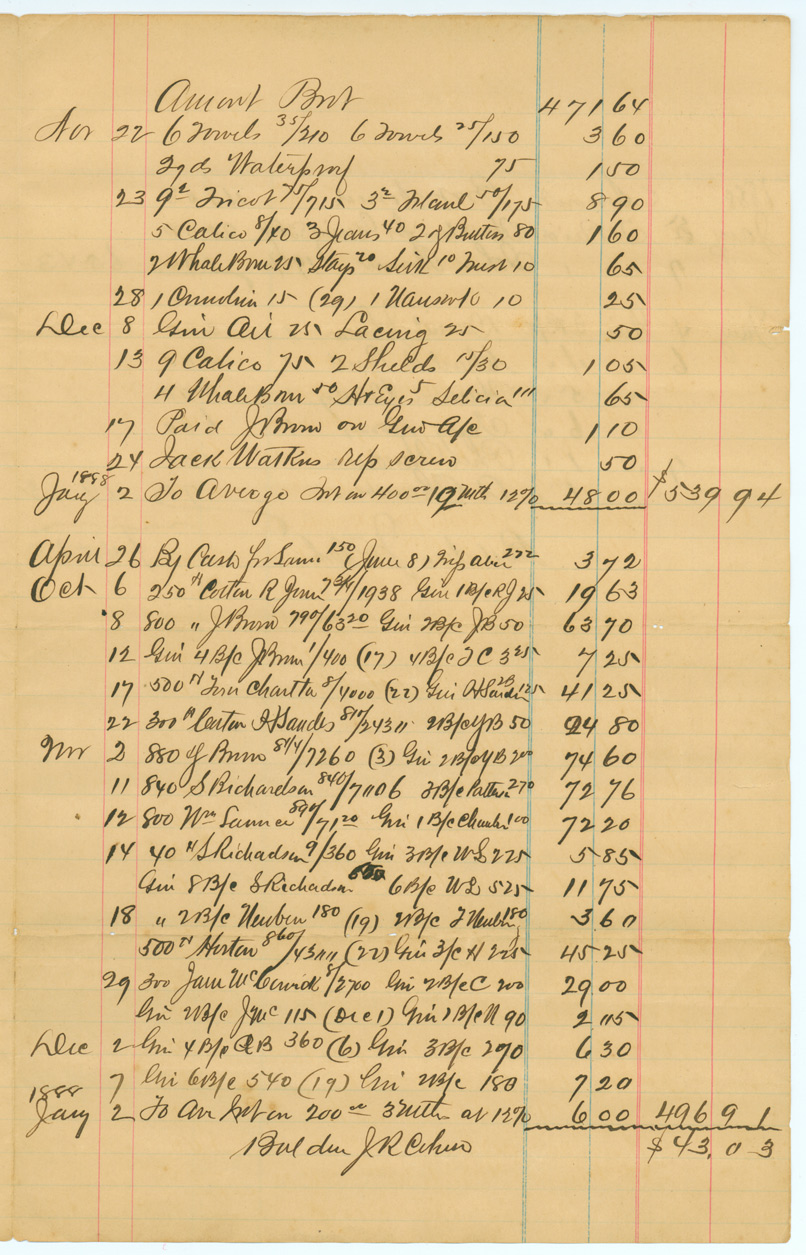 Amont Brot 471 64
Nov 22 6 Towels 35/210 6 Towels 25/150 3 60
2yds Waterproof 75 1 50
23 9 Tricot 75/715 3 50/175 8 90
5 Calico 8/40 3 Jeans 40 2 Buttons 80 1 60
2 WhaleBone 25 Stays 20 Silk 10 10 65
28 1 15 (29) 1 10 25
Dec 8 Gin Oil 25 Lacing 25 50
13 9 Calico 75 2 Shields 15/30 1 05
4 WhaleBone 50 H&Eyes 5 Selicia 65
17 Paid J Brown on Gin A/c 1 10
24 Jack Watkins rep screw 50
1888
Jany 2 To Averge Int on 400 00 12 Mth 12% 48 00 $539 94
April 26 By Cash for 150 (June 8) 222 3 72
Oct 6 250 Cotton R Jones 7 3/4/1938 Gin 1 B/c RJ 25 19 63
8 800 " J Brown 790/6320 Gin 2B/c JB 50 63 70
12 Gin 4 B/c J Brown 1/400 (17) 4 B/c 325 7 25
17 500 8/4000 (22) Gin 125 41 25
22 300 Cotton H Sanders 810/2430 2 B/c 50 24 80
Nov 2 880 Y Brown 8 1/4/7260 (3) Gin 2 B/c YB 200 74 60
11 840 S Richardson 840/7006 3 B/c 270 72 76
12 800 Wm 890/7120 Gin 1 B/c 100 72 20
14 40 S Richadson 9/360 Gin 3 B/c WS 225 5 85
Gin 8 B/c S Richadson 6 B/c WS 525 11 75
18 " 2 B/c Newben 180 (19) 2 B/c 180 3 60
500 Horton 860/4300 (22) Gin 3/c H 225 45 25
29 300 Jane McCormick 9/2700 Gin 2 B/c C 200 29 00
Gin 2 B/c J Mc 115 (Dec 1) Gin 1 B/c N 90 2 05
Dec 2 Gin 4 B/c 360 (6) Gin 3 B/c 270 6 30
7 Gin 6 B/c 540 (19) Gin 2 B/c 180 7 20
1888
Jany 2 To Av Int on 200 00 3 Mths at 12% 6 00 496 91
Bal due J R Cohen $43.03